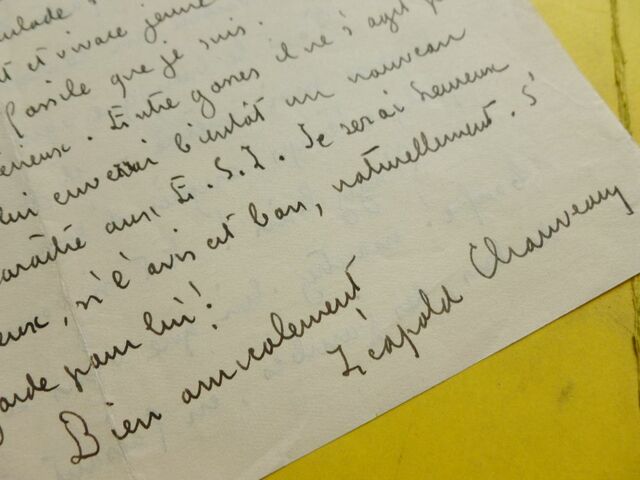 et vivace jeune
fossile que je suis.
érieux. Entre gosses il ne s'agit p
lui enverrai bientôt un nouveau
paraître aux E.S.I. Je serai heureux
eux, si l'avis est bon, naturellement. S'
garde pour lui!
Bien amicalement
Léopold Chauveau